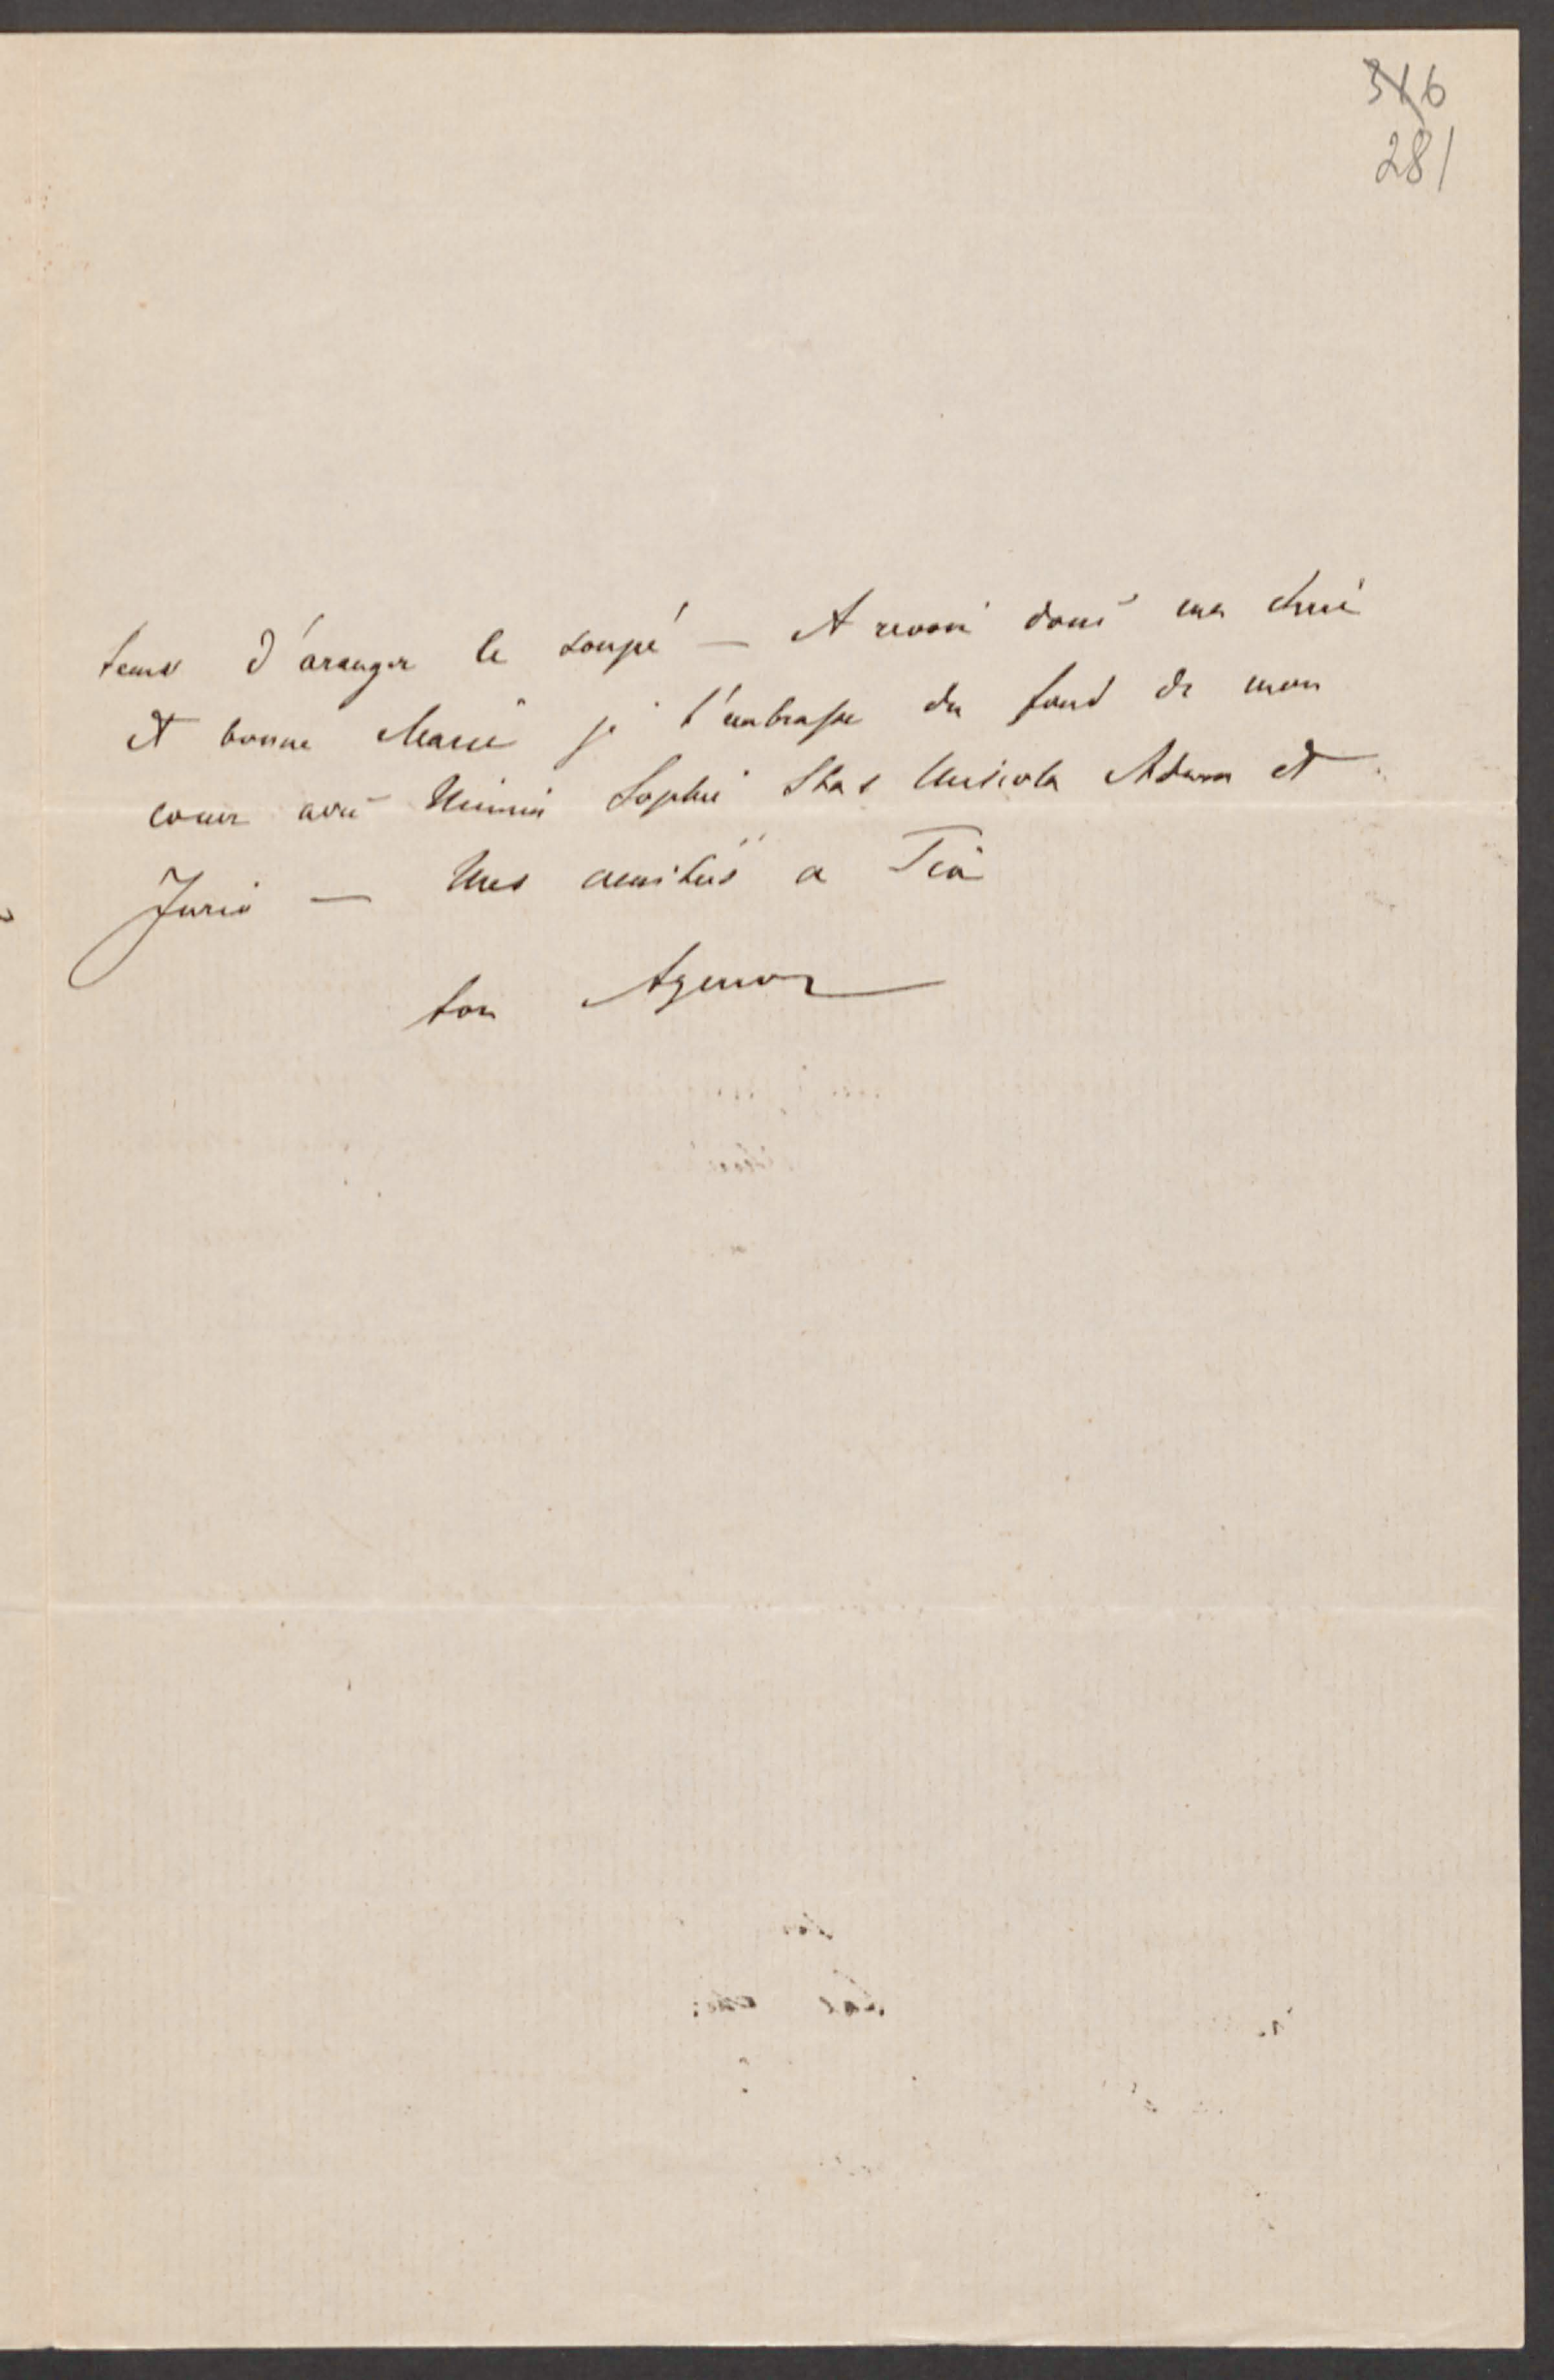 ~~316~~
281
tems d'aranger le soupé — A revoir donc ma chere
et bonne Marie je t'embrasse du fond de mon
coeur avec Mimi Sophie Stas Adam et
Jurio — Mes amitiés a
ton Agenor